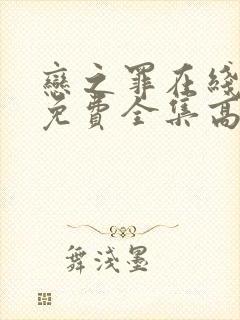 戀之罪在綫
免費全集高
舞淺墨